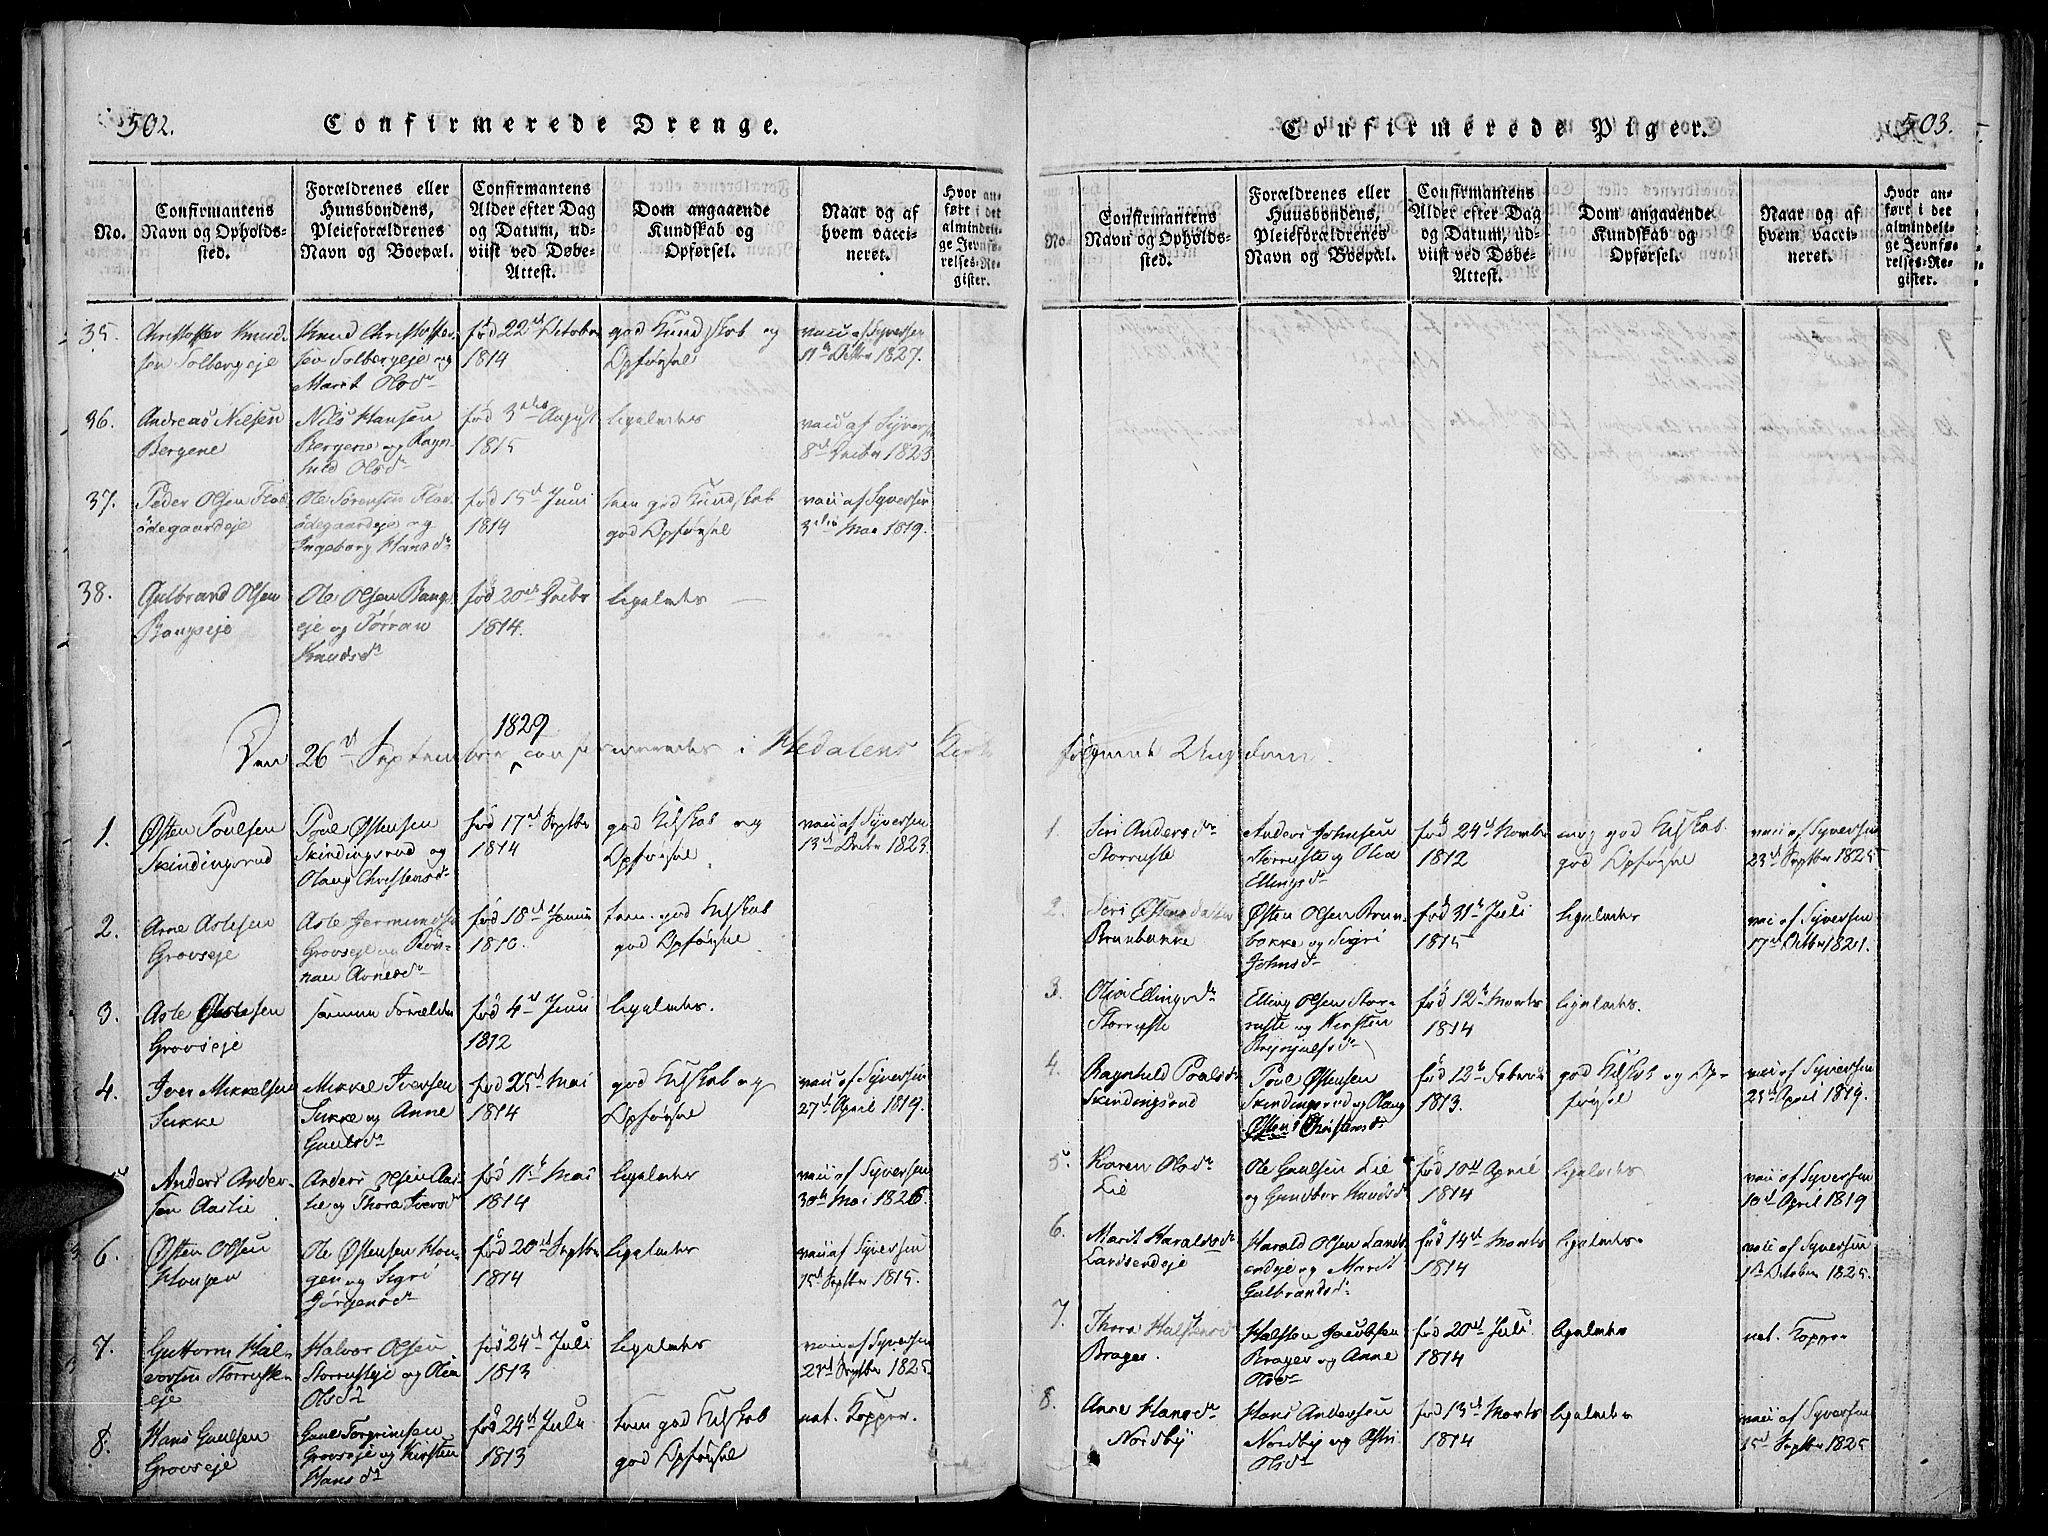 502.
Confirmerede Drenge.
No.
Confirmantens
Navn og Opholds-
sted.
Forældrenes eller
Huusbondens,
Pleieforældrenes
Navn og Boepæl.
Confirmantens
Alder efter Dag
og Datum, ud-
viist ved Døbe-
Attest.
Dom angaaende
Kundskab og
Opførsel.
Naar og af
hvem vacci-
neret.
Hvor an-
ført i det
almindeli-
ge Jevnfø-
relses-Re-
gister.
35.
Christoffer Knud-
sen Solbergeje
Knud Christoffer-
sen Solbergeje og
Marit Olsdr
född 22de October
1814
god Kundskab og
Opførsel
vacc af Syversen
11te Octbr 1827.
36.
Andreas Nilsen
Bergene
Nils Hansen
Bergene og Ragn-
hild Olsdr
fød 3die August
1815
ligeledes
vacc af Syversen
8de Decbr 1823.
37.
Peder Olsen Flad-
ødegaardeje
Ole Sørensen Flad-
ødegaardeje og
Ingeborg Hansdr
fød 15de Juni
1814
tem god Kundskab
god Opførsel
vacc af Syversen
3die Mai 1819.
38.
Gulbrand Olsen
Bangseje
Ole Olsen Bangs-
eje og Jørran
Knudsdr
fød 20de Decbr
1814.
ligeledes
1829
Den 26de September confirmeredes i Hedalens Kirke
1.
Østen Poulsen
Skindingsrud
Poul Østensen
Skindingsrud og
Olaug Christensdr
fød 17de Septbr
1814
god Kdskab og
Opførsel.
vacc af Syversen
13de Decbr 1823.
2.
Arne Aslesen
Grovseje
Asle Jermundsen
Grovseje og Rön-
nau Arnesdr
fød 18de Januar
1810.
tem. god Kdskab
god Opførsel
3.
Asle Aslesen
Grovseje
samme Forældre
fød 4de Juni
1812
ligeledes.
4.
Iver Mikkelsen
Sukke
Mikkel Iversen
Sukke og Anne
Gaulsdr
fød 25de Mai
1814
god Kdskab og
Opførsel
vacc af Syversen
27de April 1819.
5
Anders Ander-
sen Aaslie
Anders Olsen Aas-
lie og Thora Iversdr
fød 11te Mai
1814
ligeledes
vacc af Syversen
30te Mai 1826.
6.
Østen Olsen
Haugen
Ole Østensen Hau-
gen og Sigri
Jørgensdr
fød 20de Septbr
1814
ligeledes
vacc af Syversen
15de Septbr 1815.
7.
Guttorm Hal-
vorsen Storruste-
eje
Halvor Olsen
Storrusteje og Olia
Olsdr
fød 24de Juli
1813
ligeledes
vacc af Syversen
23de Septbr 1825
8.
Hans Gaulsen
Grovseje
Gaul Torgrimsen
Grovseje og Kirsten
Hansdr
fød 24de Juli
1813
tem god Kdskab
god Opførsel
nat. Kopper.
503.
Confirmerede Piger.
No.
Confirmantens
Navn og Opholds-
sted.
Forældrenes eller
Huusbondens,
Pleieforældrenes
Navn og Boepæl.
Confirmantens
Alder efter Dag
og Datum, ud-
viist ved Døbe-
Attest.
Dom angaaende
Kundskab og
Opførsel.
Naar og af
hvem vacci-
neret.
Hvor an-
ført i det
almindeli-
ge Jevnfø-
relses-Re-
gister.
følgende Ungdom.
1.
Siri Andersdr
Storruste
Anders Johnsen
Storruste og Olia
Ellingsdr
fød 24de Novbr
1812
meg god Kdskab
god Opførsel
vacc af Syversen
23de Septbr 1825
2.
Siri Østensdatter
Brunbakke
Østen Olsen Brun-
bakke og Sigri
Johnsdr
fød 31te Juli
1815
ligeledes
vacc af Syversen
17de Octbr 1821.
3.
Olia Ellingsdr
Storruste
Elling Olsen Stor-
ruste og Kirsten
Brynjulfsdr
fød 12te Marts
1814
ligeledes.
4.
Ragnhild Poulsdr
Skindingsrud
Poul Østensen
Skindingsrud og Olaug
Christensdr
fød 12te Februar
1813.
god Kdskab og Op-
førsel
vacc af Syversen
23de April 1819.
5.
Karen Olsdr
Lie
Ole Gaulsen Lie
og Gundbor Knudsdr
fød 10de April
1814
ligeledes
vacc af Syversen
10de April 1819
6.
Marit Haraldsdr
Landsendeje
Harald Olsen Lands-
endeje og Marit
Gulbrandsdr
fød 14de Marts
1814
ligeledes.
vacc af Syversen
1ste October 1825.
7.
Thora Halstensdr
Brager.
Halsten Jacobsen
Brager og Anne
Olsdr
fød 20de Juli
1814
ligeledes
nat. Kopper
8.
Anne Hansdr
Nordby
Hans Andersen
Nordby og Østri
Olsdr
fød 13de Marts
1814
ligeledes
vacc af Syversen
15de Septbr 1825